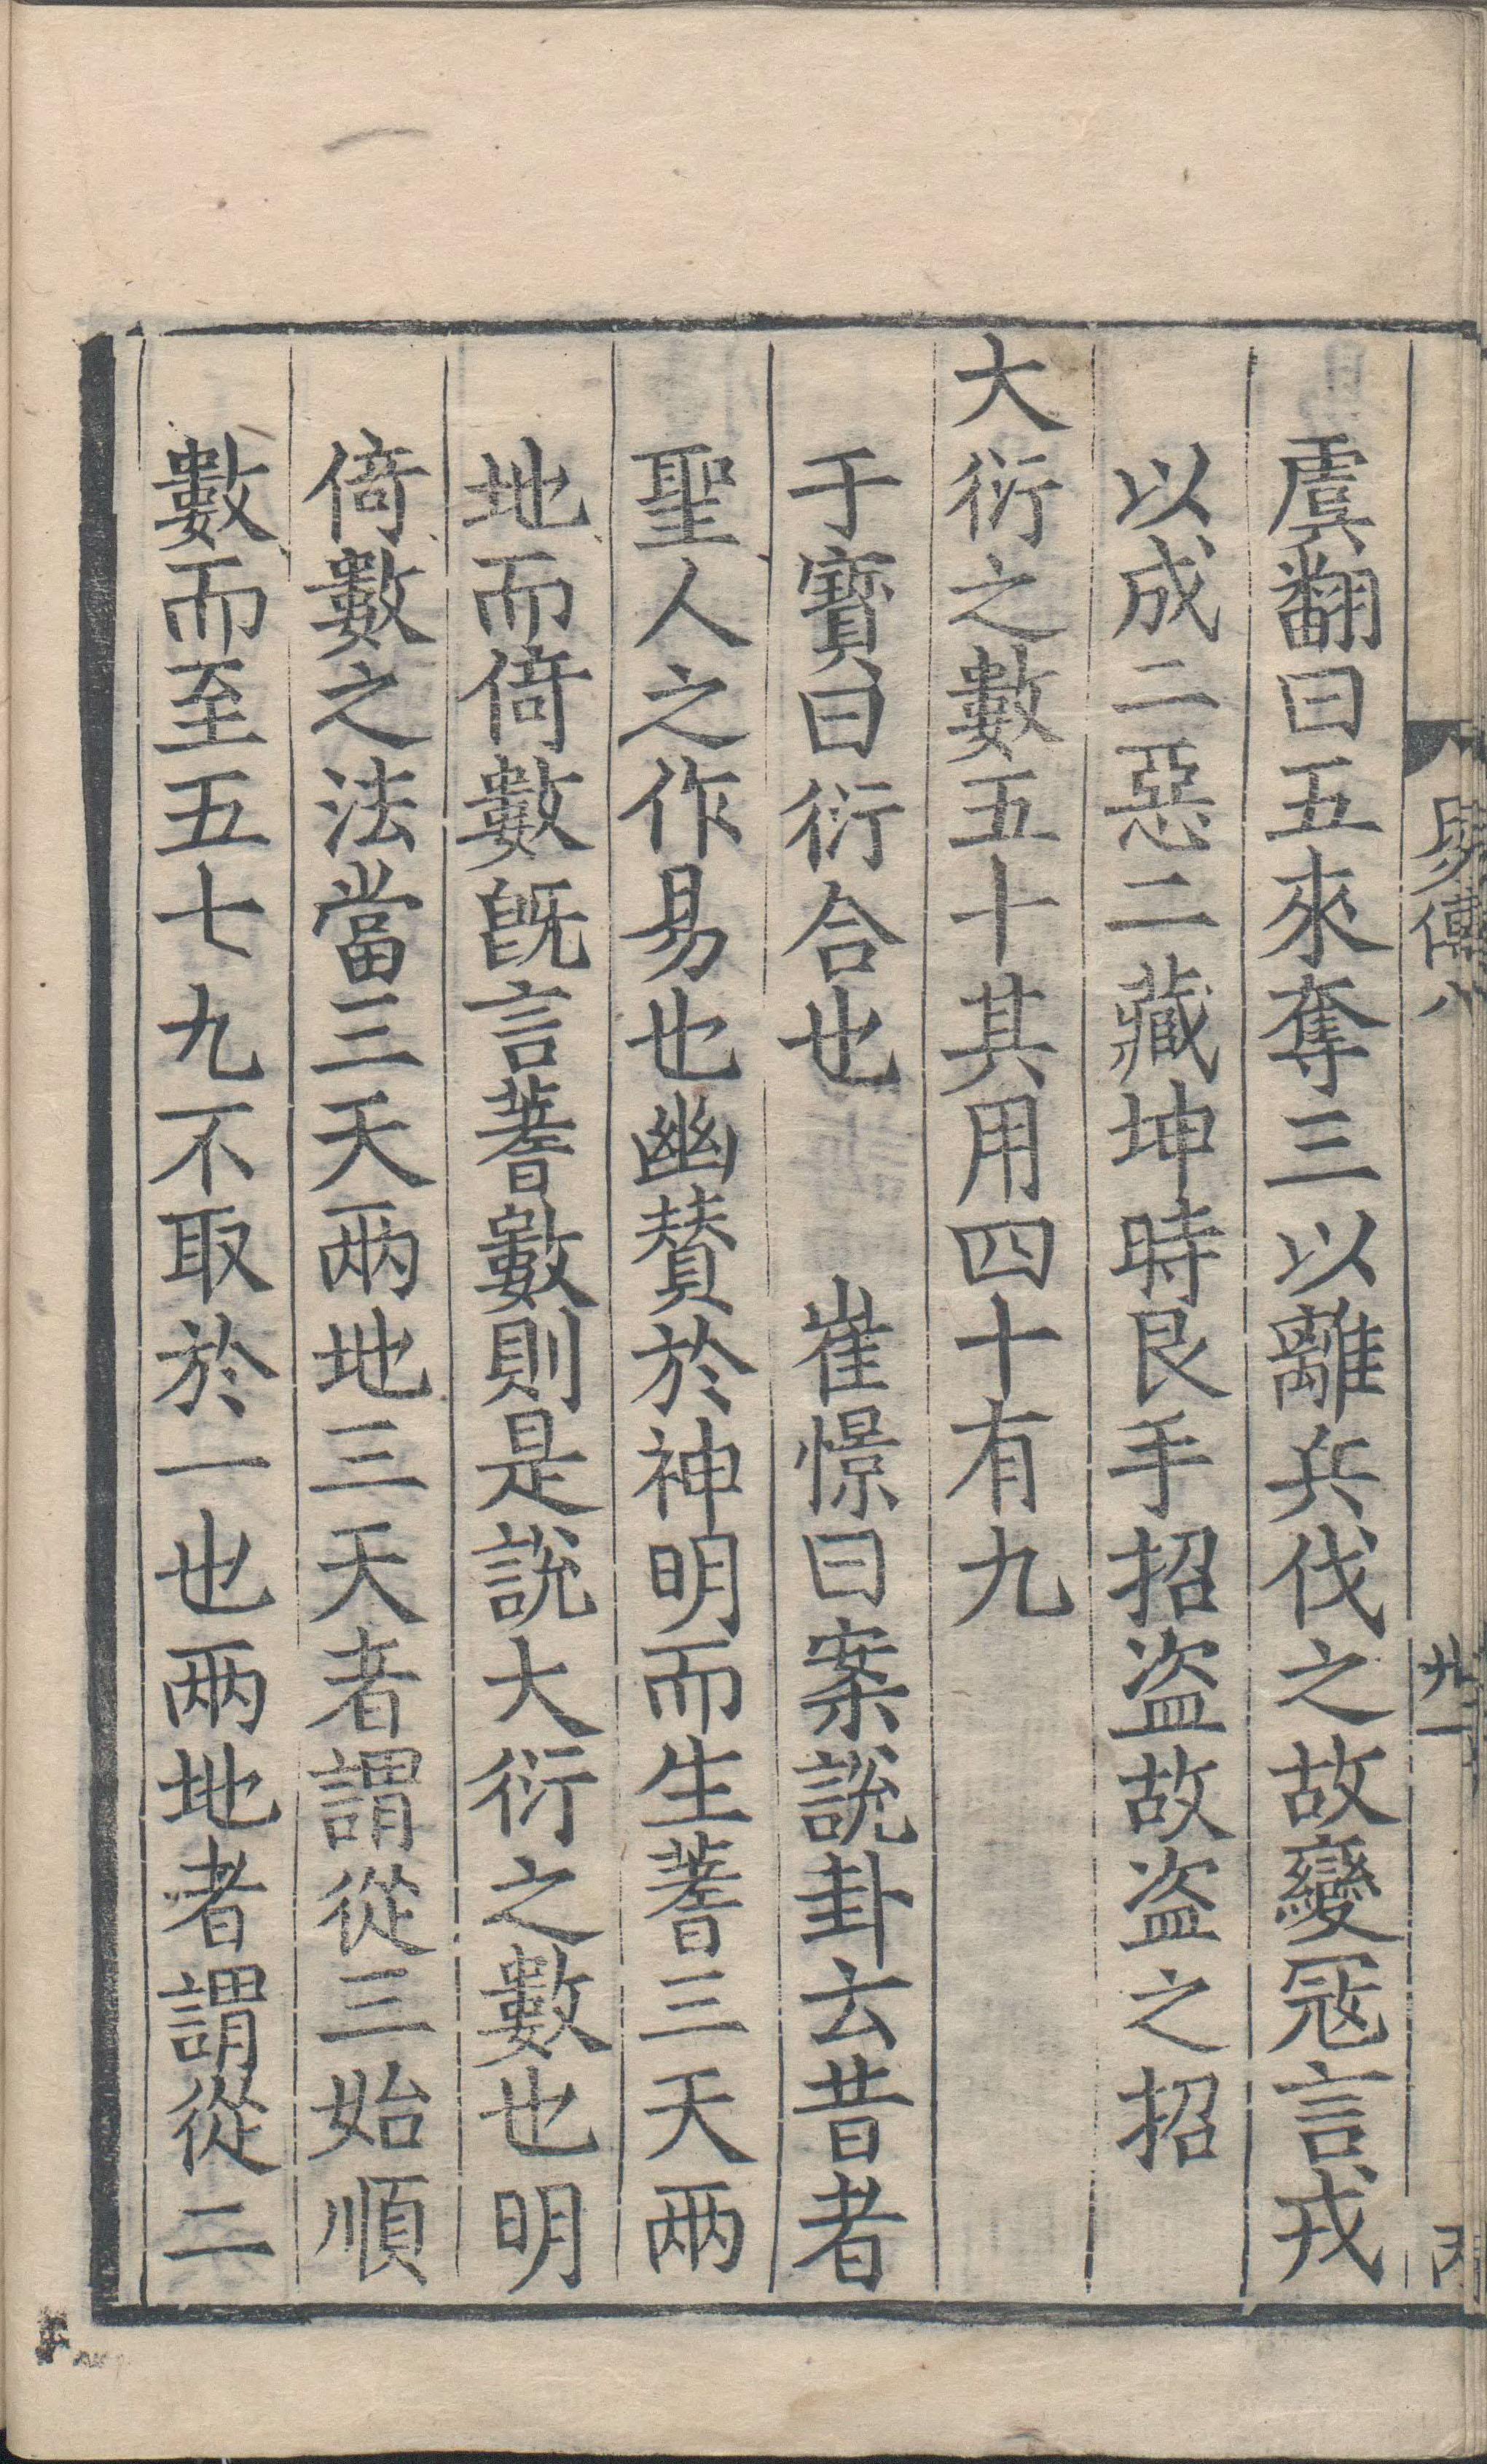 虞翻曰五來奪三以離兵伐之故變冦言戎
以成二惡二藏坤時艮手招盗故盗之招
大衍之數五十其用四十有九
于寶曰衍合也　崔憬曰案說卦云昔者
聖人之作易也幽賛於神明而生蓍三天兩
地而倚數旣言蓍數則是說大衍之數也明
倚數之法當三天兩地三天者謂從三始順
數而至五七九不取於一也兩地者謂從二